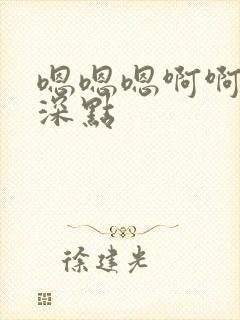 嗯嗯嗯啊啊
深點
徐建光